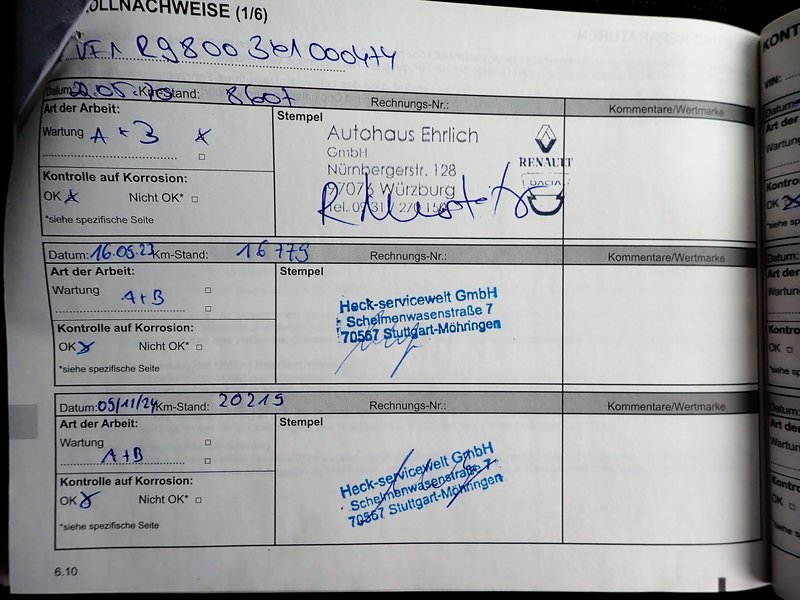 OLLNACHWEISE (1/6)
VF1 R9800361000474
Datum: Km-Stand: 8607 Rechnungs-Nr.: Kommentare/Wertmarke
Art der Arbeit: Stempel
Wartung A + B x
Autohaus Ehrlich
GmbH
Nürnbergerstr. 128
97076 Würzburg
Tel. 0931/270 150
RENAULT
DACIA
Kontrolle auf Korrosion:
OK x Nicht OK* □
*siehe spezifische Seite
Datum: Km-Stand: 16779 Rechnungs-Nr.: Kommentare/Wertmarke
Art der Arbeit: Stempel
Wartung □
A+B □
Heck-servicewelt GmbH
Schelmenwasenstraße 7
70567 Stuttgart-Möhringen
Kontrolle auf Korrosion:
OK x Nicht OK* □
*siehe spezifische Seite
Datum: 05/11/24 Km-Stand: 20219 Rechnungs-Nr.: Kommentare/Wertmarke
Art der Arbeit: Stempel
Wartung □
A+B □
Heck-servicewelt GmbH
Schelmenwasenstraße 7
70567 Stuttgart-Möhringen
Kontrolle auf Korrosion:
OK x Nicht OK* □
*siehe spezifische Seite
6.10
KONT
VIN:
Datum
Art der
Wartung
Kontro
OK x
*siehe sp
Datum:
Art der
Wartun
Kontro
OK □
*siehe
Datum:
Art d
Wartun
Kont
OK □
*siehe